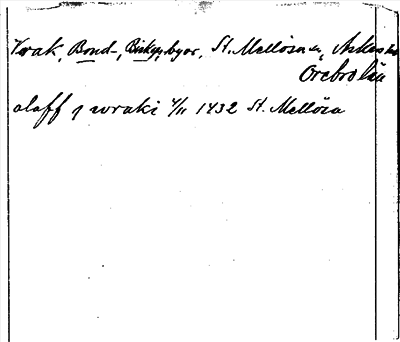 Vrak, Bond-, Biskops, byar, St. Mellösa sn, Askers hd
Örebro län
olaff j wraki 4/11 1432 St. Mellösa